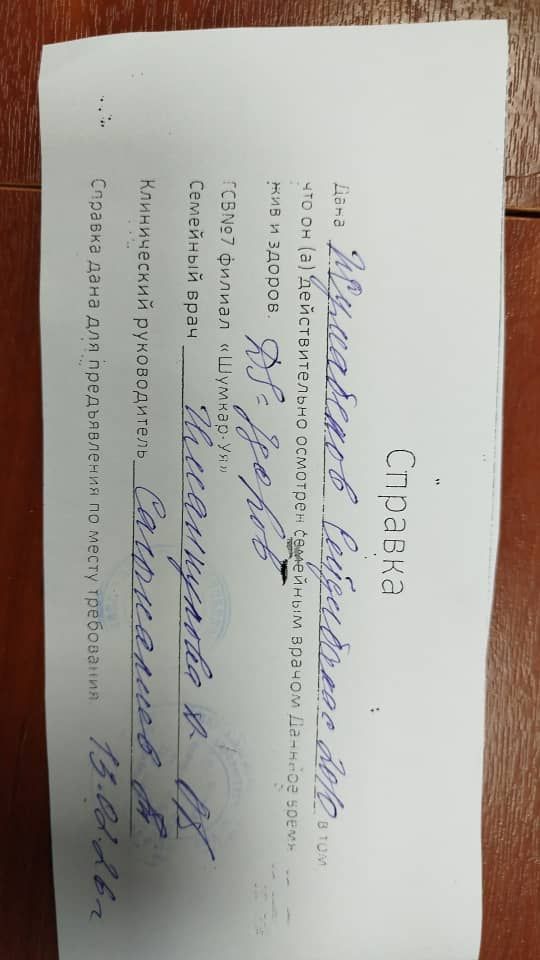 Справка
Дана Жумабеков 2010 в том
что он (а) действительно осмотрен семейным врачом Данное время
жив и здоров. DS= здоров
ГСВ№7 филиал «Шумкар-Уя»
Семейный врач
Клинический руководитель
Справка дана для предъявления по месту требования 13.02.26г